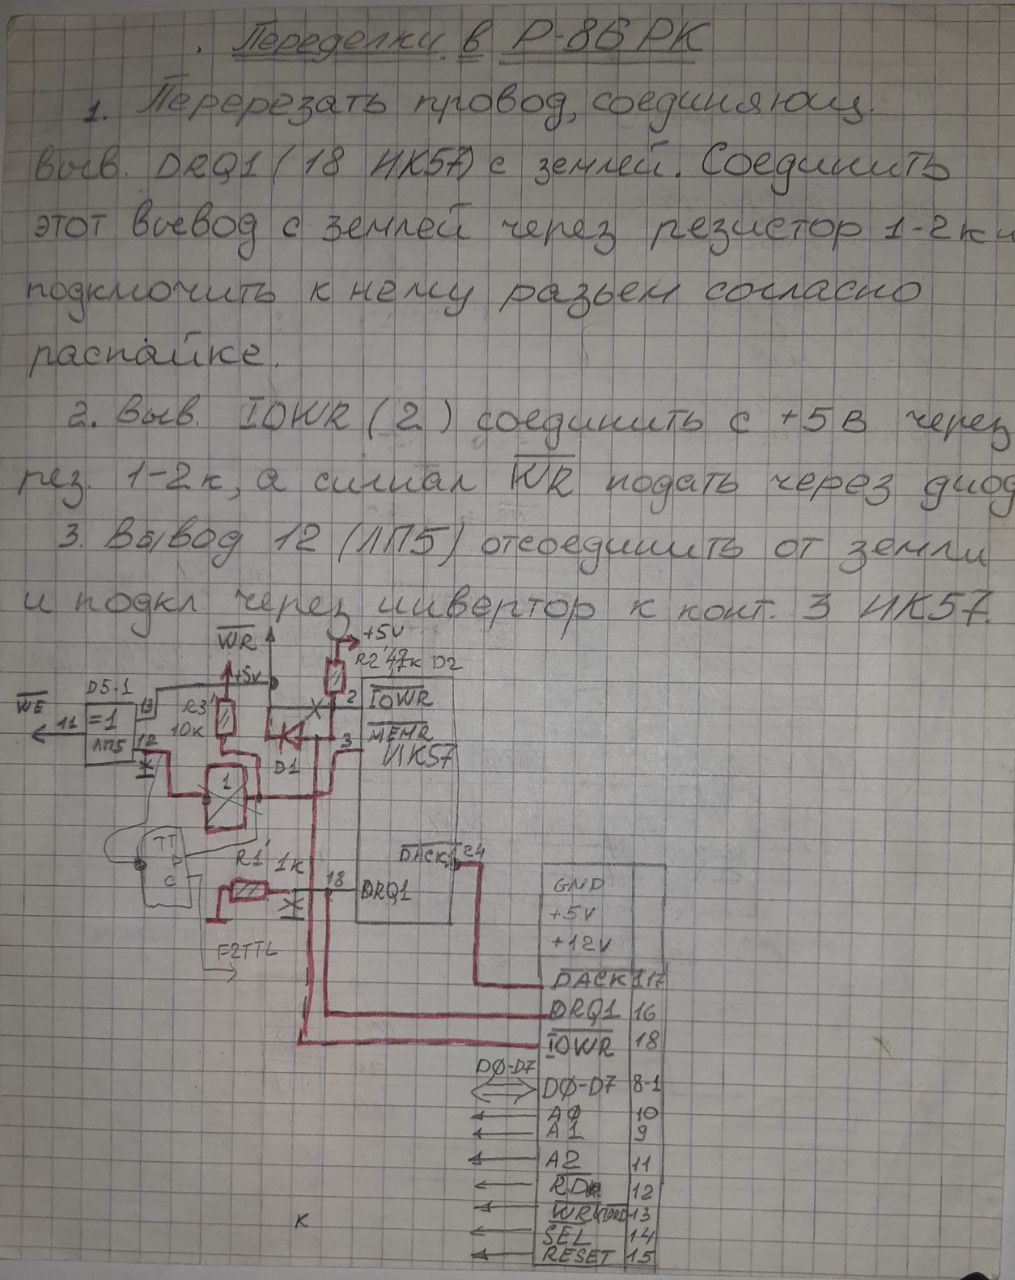 Переделки в Р-86РК
1. Перерезать провод, соединяющ.
выв. DRQ1 (18 ИК57) с землей. Соединить
этот вывод с землей через резистор 1-2к и
подключить к нему разьем согласно
распайке.
2. Выв. IOWR (2) соединить с +5В через
рез. 1-2к, а сигнал WR подать через диод
3. Вывод 12 (ЛП5) отсоединить от земли
и подкл. через инвертор к конт. 3 ИК57.
WR
+5V
R2' 4,7к D2
+5V
D5.1
WE
11
=1
ЛП5
13
12
R3'
10к
2
IOWR
3
MEMR
ИК57
D1
1
TT
D
C
R1'
1к
18
DRQ1
DACK1
24
F2TTL
GND
+5V
+12V
DACK1 17
DRQ1 16
IOWR 18
DØ-D7
DØ-D7 8-1
AØ 10
A1 9
A2 11
RD 12
WR 13
SEL 14
RESET 15
к